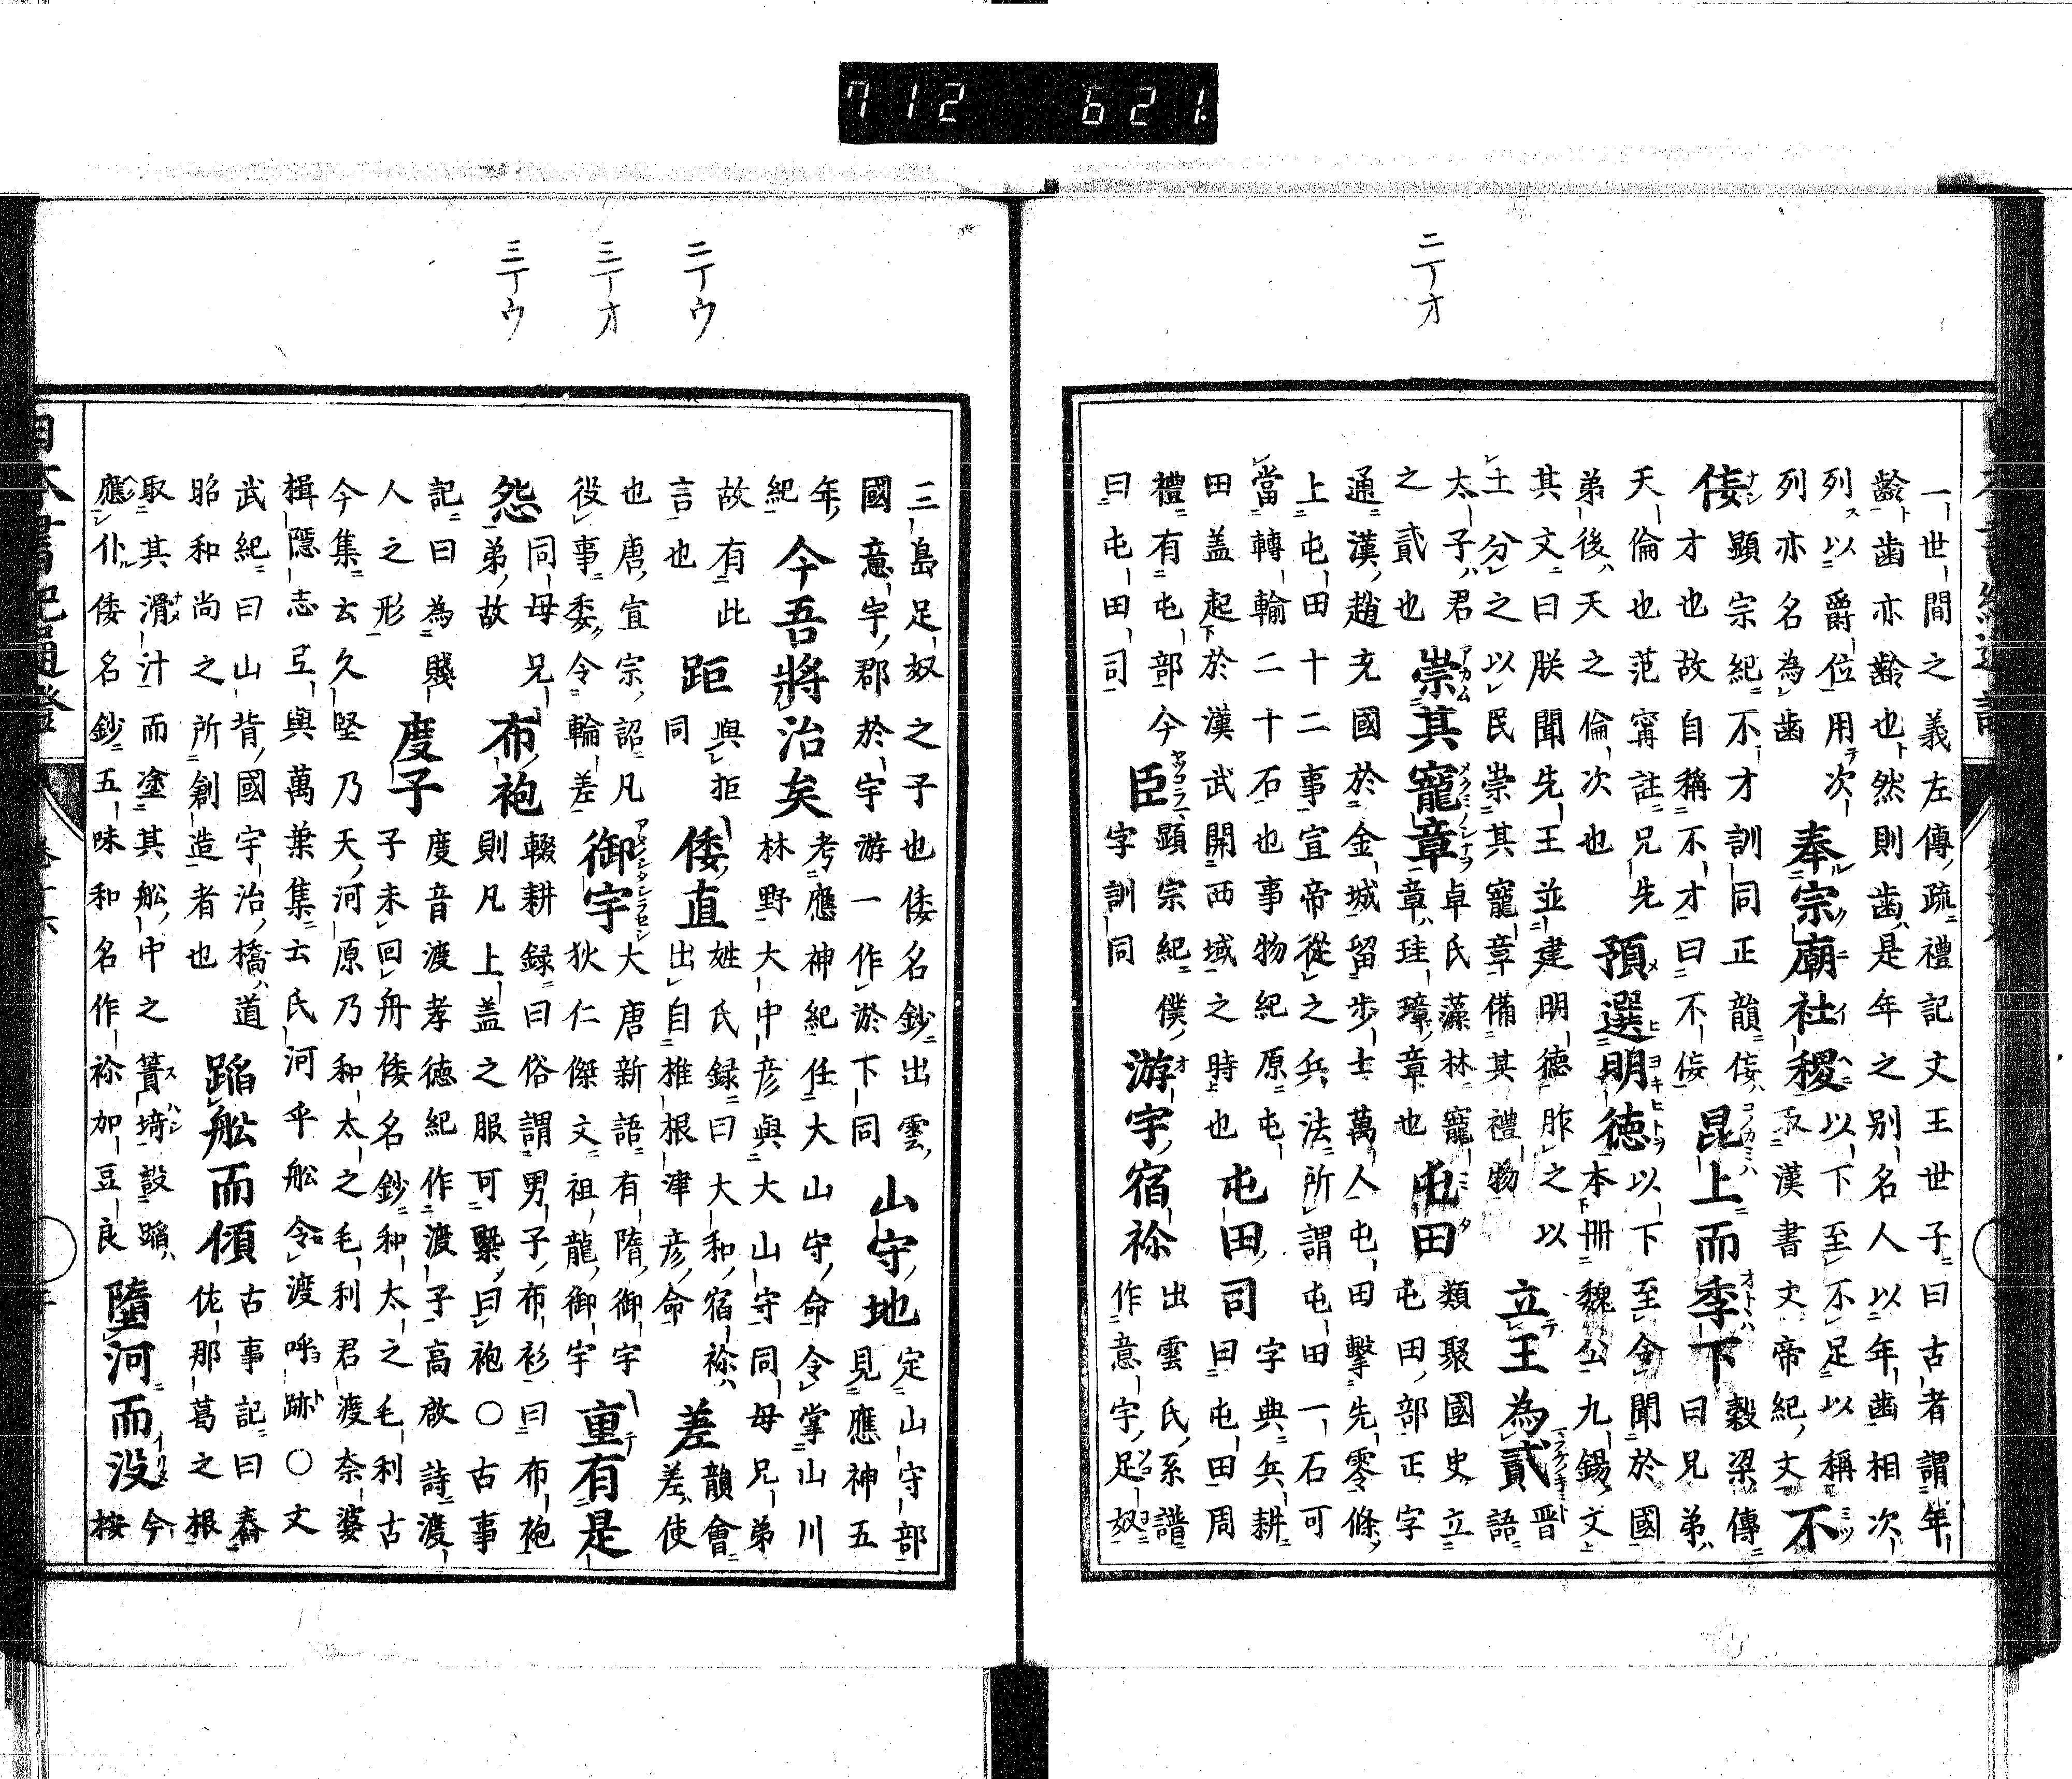 712 621.
二丁オ
一世間之義左傳疏禮記文王世子曰古者謂年
齡齒亦齡也然則齒是年之別名人以年齒相次
列以爵位用次
列亦名為齒
奉宗廟社稷
以下至不足以稱
取漢書文帝紀文
不
佞
顯宗紀不才訓同正韻佞
才也故自稱不才曰不佞
昆上而季下
穀梁傳
曰兄弟
天倫也范甯註兄先
弟後天之倫次也
預選明徳
以下至令聞於國
本冊魏公九錫文
其文曰朕聞先王並建明徳胙之以
土分之以民崇其寵章備其禮物
立王為貳
晋
語
太子君
之貳也
崇其寵章
卓氏藻林寵
章珪璋章也
屯田
類聚國史立
屯田部正字
通漢趙充國於金城留步士萬人屯田撃先零條
上屯田十二事宣帝從之兵法所謂屯田一石可
當轉輸二十石也事物紀原屯
田盖起於漢武開西域之時也
屯田司
字典兵耕
曰屯田周
禮有屯部今
曰屯田司
臣
顯宗紀僕
字訓同
游宇宿祢
出雲氏系譜
作意宇足奴
二丁ウ
三丁オ
三丁ウ
三島足奴之子也倭名鈔出雲
國意宇郡於宇游一作淤下同
山守地
定山守部
見應神五
年
紀
今吾將治矣
考應神紀任大山守命令掌山川
林野大中彦與大山守同母兄弟
故有此
言也
距
與拒
同
倭直
姓氏録曰大和宿祢
出自椎根津彦命
差
韻會
差使
也唐宣宗詔凡
役事委令輪差
御宇
大唐新語有隋御宇
狄仁傑文祖龍御宇
重有是
怨
同母兄
弟故
布袍
輟耕録曰俗謂男子布衫曰布袍
則凡上盖之服可槩曰袍○古事
記曰為賤
人之形
度子
度音渡孝徳紀作渡子高啟詩渡
子未回舟倭名鈔和太之毛利古
今集云久堅乃天河原乃和太之毛利君渡奈婆
楫隱志弖與萬葉集云氏河乎船令渡呼跡○文
武紀曰山背國宇治橋道
昭和尚之所創造者也
蹈舩而傾
古事記曰舂
佐那葛之根
取其滑汁而塗其舩中之簀埼設蹈
應仆倭名鈔五味和名作祢加豆良
墮河而没
今
按